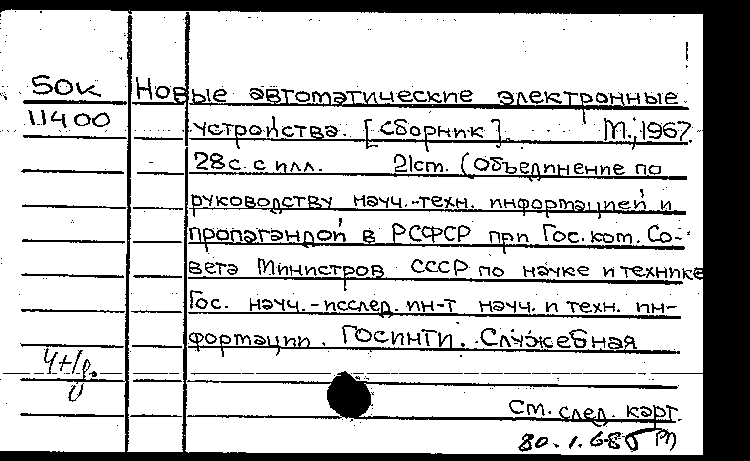 50к Новые автоматические электронные
11400 устройства. [Сборник]. М., 1967
28с. с илл. 21см. (Объединение по
руководству науч.-техн. информацией и
пропагандой в РСФСР при Гос. ком. Со-
вета Министров СССР по науке и технике
Гос. науч.-исслед. ин-т науч. и техн. ин-
формации. ГОСИНТИ. Служебная
см. след. карт
80.1.68